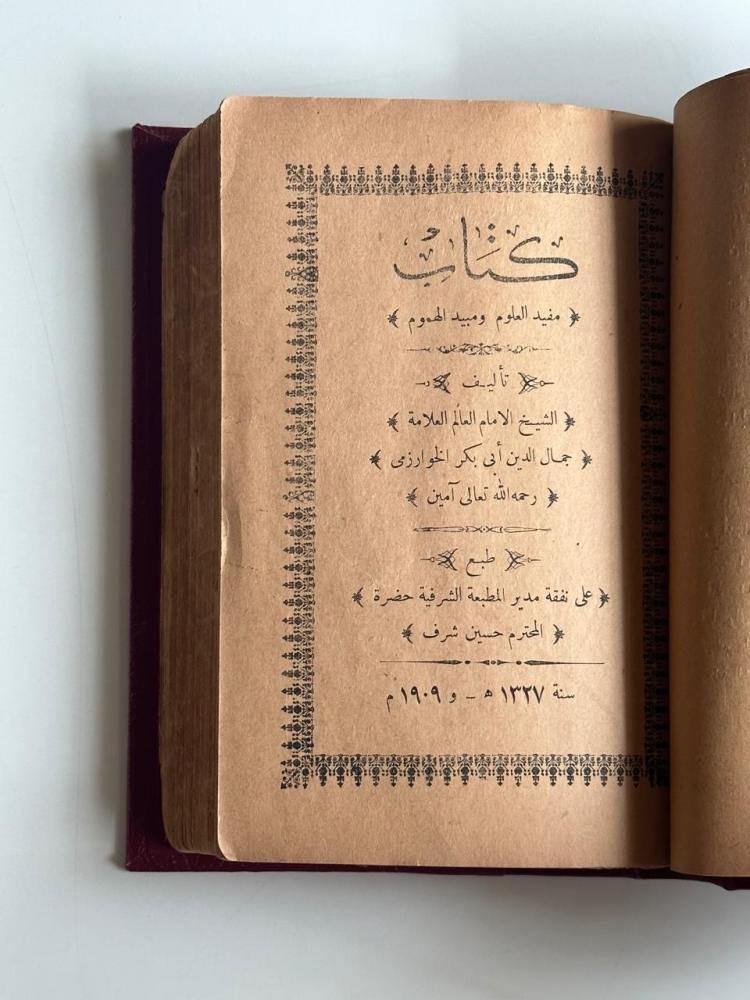 كتاب
مفيد العلوم ومبيد الهموم
تأليف
الشيخ الامام العالم العلامة
جمال الدين أبى بكر الخوارزمى
رحمه الله تعالى آمين
طبع
على نفقة مدير المطبعة الشرفية حضرة
المحترم حسين شرف
سنة ١٣٢٧ هـ - و ١٩٠٩ م